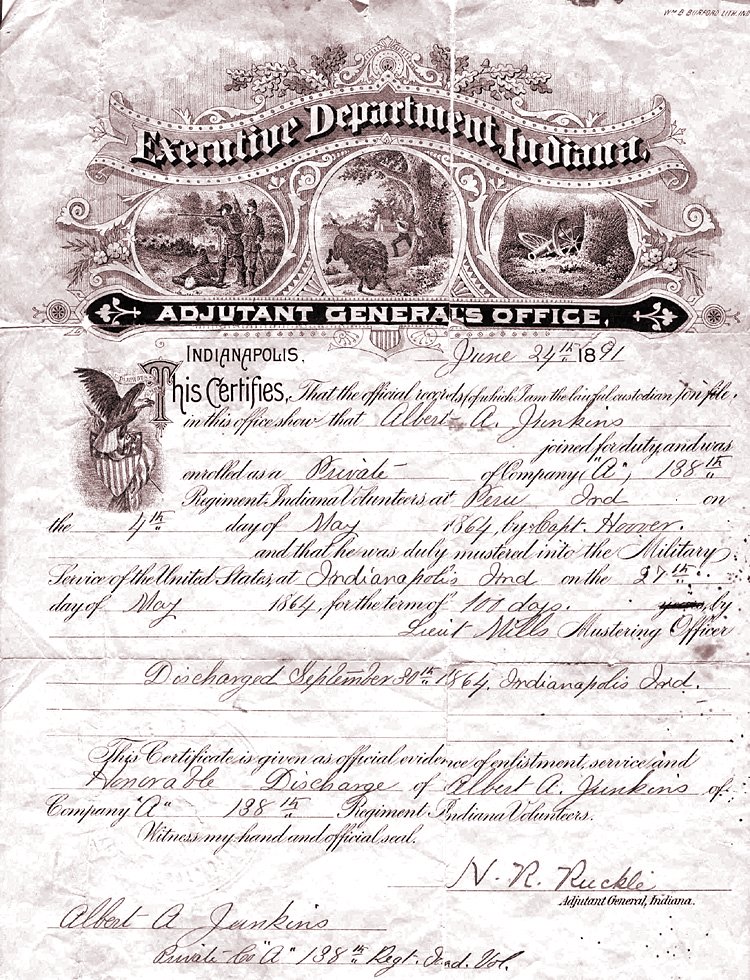 Wm B BURFORD LITH. IND
Executive Department, Indiana.
ADJUTANT GENERAL'S OFFICE.
INDIANAPOLIS, June 24th 1891
This Certifies, That the official records (of which I am the lawful custodian) on file
in this office show that Albert A. Junkins
joined for duty and was
enrolled as a Private of Company "A", 138th
Regiment Indiana Volunteers at Peru Ind on
the 4th day of May 1864, by Capt. Hoover.
and that he was duly mustered into the Military
Service of the United States, at Indianapolis Ind on the 27th
day of May 1864, for the term of 100 days. years, by
Lieut Mills Mustering Officer
Discharged September 30th 1864, Indianapolis Ind.
This Certificate is given as official evidence of enlistment, service and
Honorable Discharge of Albert A. Junkins of
Company "A" 138th Regiment Indiana Volunteers.
Witness my hand and official seal.
N. R. Ruckle
Adjutant General, Indiana.
Albert A Junkins
Private Co "A" 138th Regt. Ind. Vol.